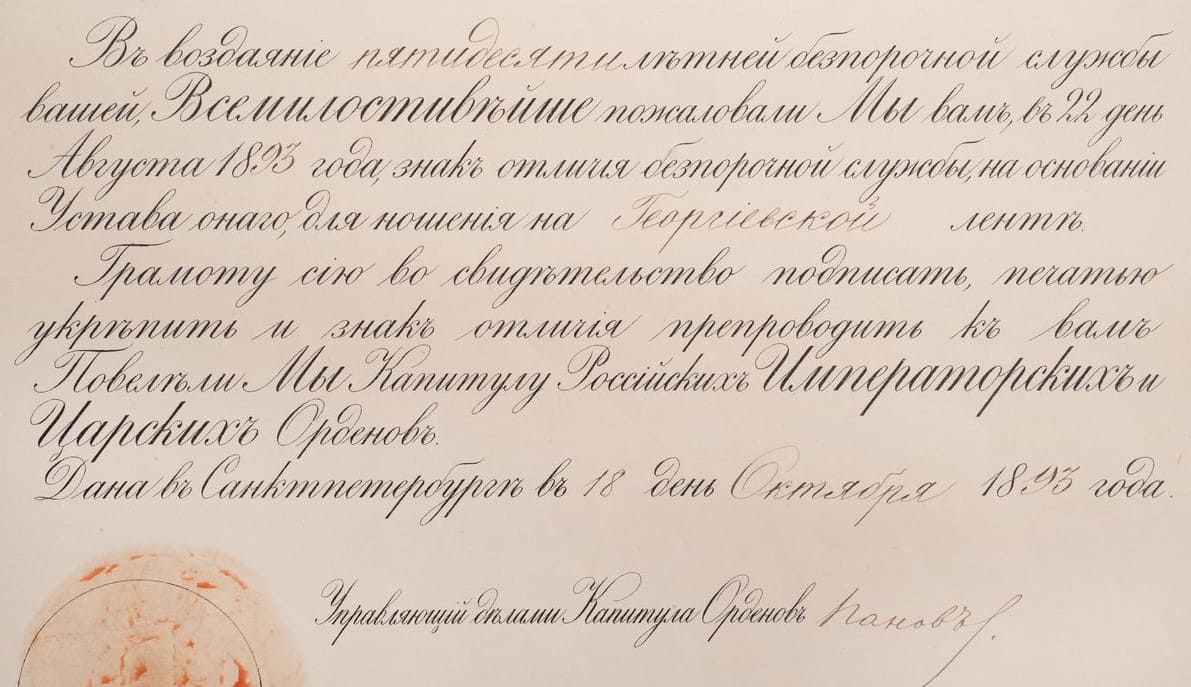 Въ воздаяніе пятидесятилѣтней безпорочной службы
вашей, Всемилостивѣйше пожаловали Мы вамъ, въ 22 день
Августа 1893 года, знакъ отличія безпорочной службы, на основаніи
Устава онаго, для ношенія на Георгіевской лентѣ.
Грамоту сію во свидѣтельство подписать, печатью
укрѣпить и знакъ отличія препроводить къ вамъ
Повелѣли Мы Капитулу Россійскихъ Императорскихъ и
Царскихъ Орденовъ.
Дана въ Санктпетербургѣ въ 18 день Октября 1893 года.
Управляющій дѣлами Капитула Орденовъ Пановъ